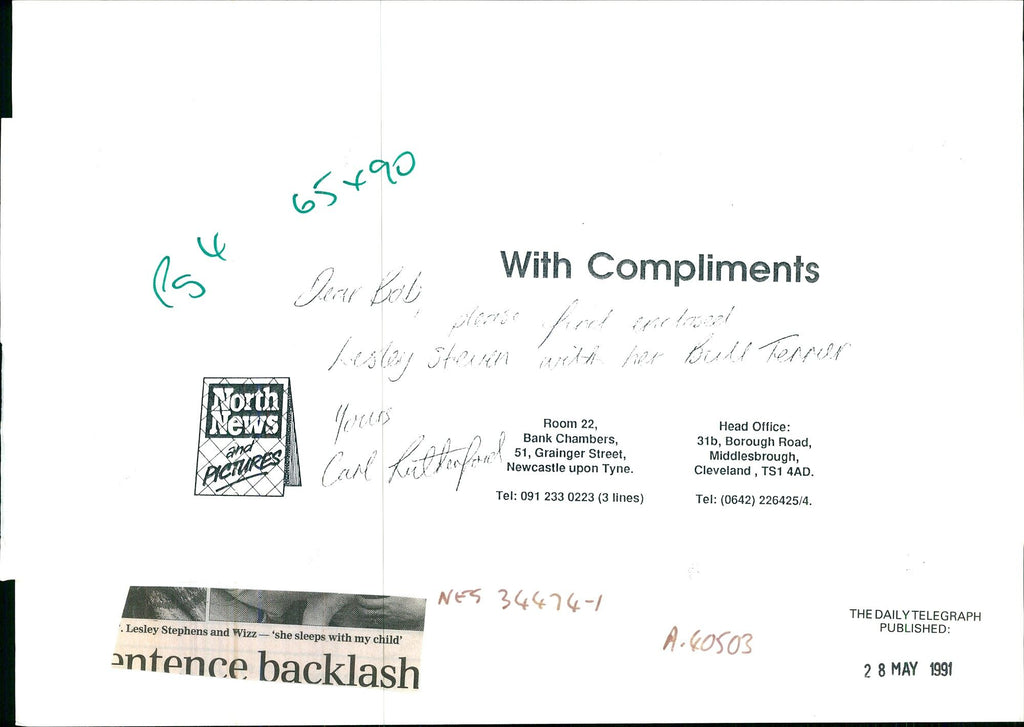 65x90
Pg 4
With Compliments
Dear Bob,
please find enclosed
Lesley Steven with her Bull Terrier
Yours
Carl Rutherford
North
News
and
PICTURES
Room 22,
Bank Chambers,
51, Grainger Street,
Newcastle upon Tyne.
Tel: 091 233 0223 (3 lines)
Head Office:
31b, Borough Road,
Middlesbrough,
Cleveland , TS1 4AD.
Tel: (0642) 226425/4.
. Lesley Stephens and Wizz — ‘she sleeps with my child’
entence backlash
NES 34474-1
A.40503
THE DAILY TELEGRAPH
PUBLISHED:
28 MAY 1991